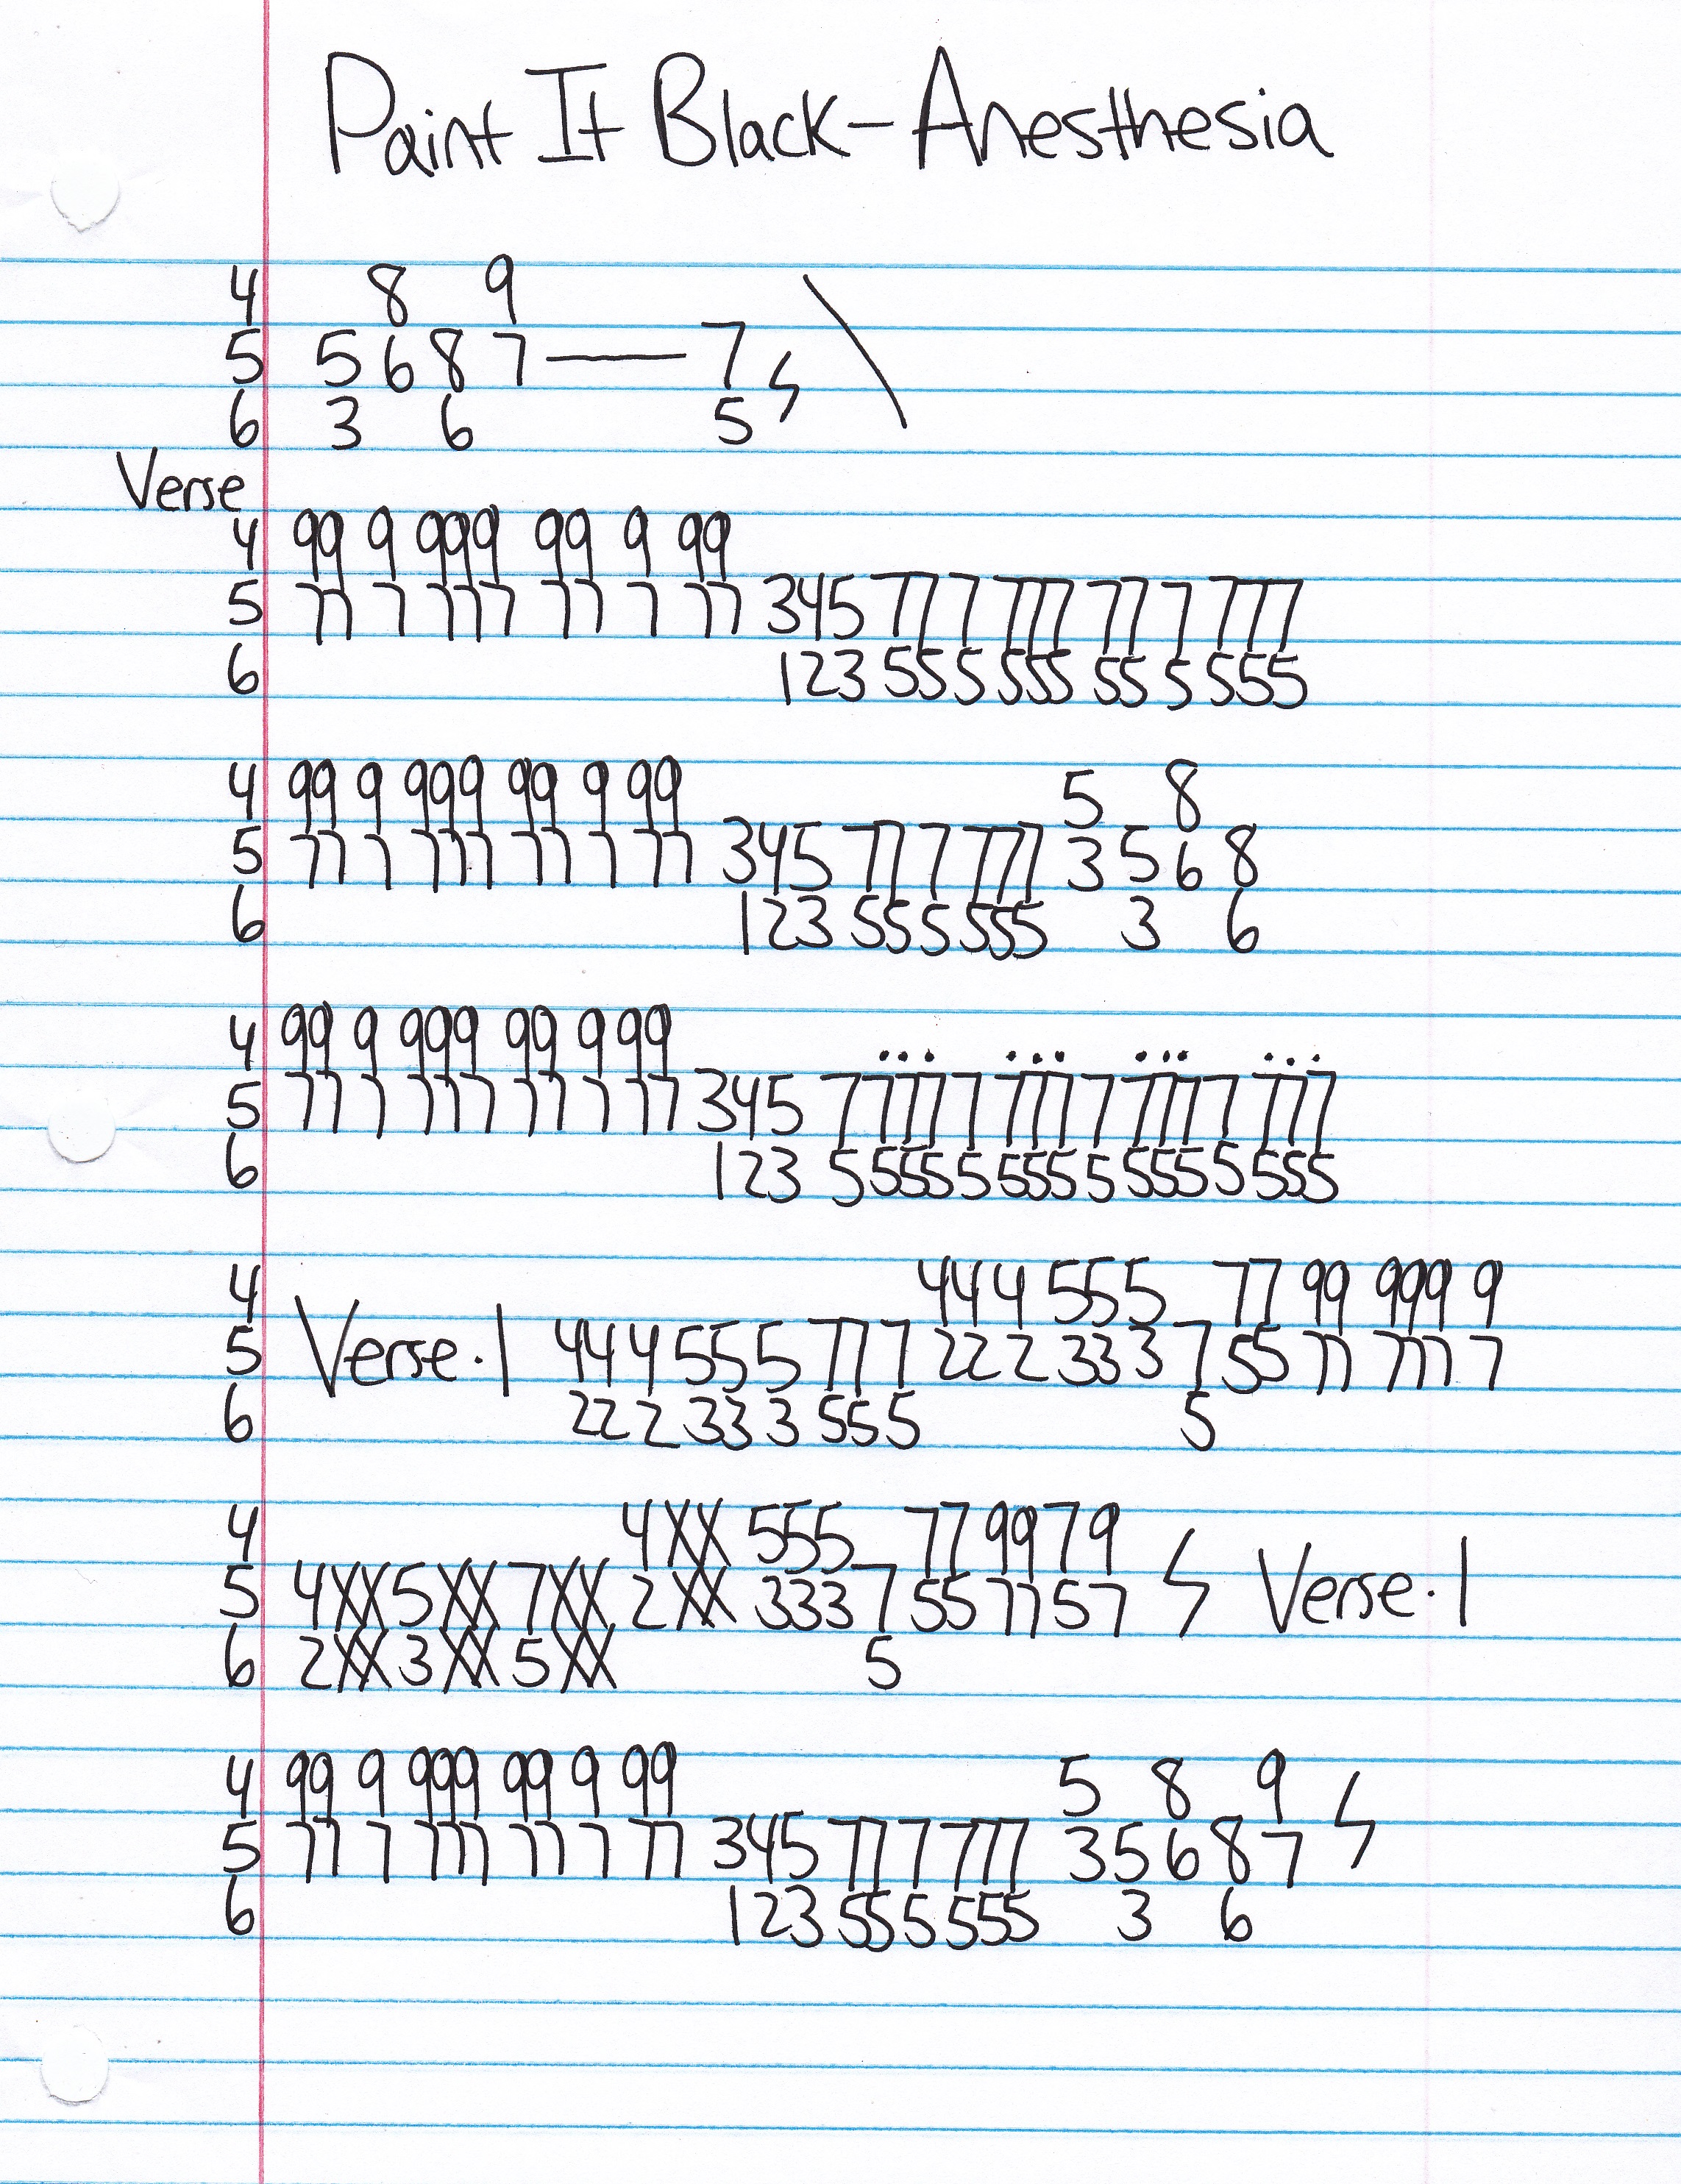 Paint It Black - Anesthesia
4 8 9
5 5 6 8 7 — 7
6 3 6 5
Verse
4 99 9 999 99 9 99
5 77 7 777 77 7 77 345 77 7 777 77 7 777
6 123 55 5 555 55 5 555
4 99 9 999 99 9 99 5 8
5 77 7 777 77 7 77 345 77 7 777 3 5 6 8
6 123 55 5 555 3 6
4 99 9 999 99 9 99 ... ... ... ...
5 77 7 777 77 7 77 345 7777 7 777 7 777 7 777
6 123 5 555 5 555 5 555 5 555
4 444 555 77 99 999 9
5 Verse.1 444 555 777 222 333 7 55 77 777 7
6 222 333 555 5
4 4XX 555 77 99 79
5 4XX 5XX 7XX 2XX 333 7 55 77 57 Verse.1
6 2XX 3XX 5XX 5
4 99 9 999 99 9 99 5 8 9
5 77 7 777 77 7 77 345 77 7 777 3 5 6 8 7
6 123 55 5 555 3 6